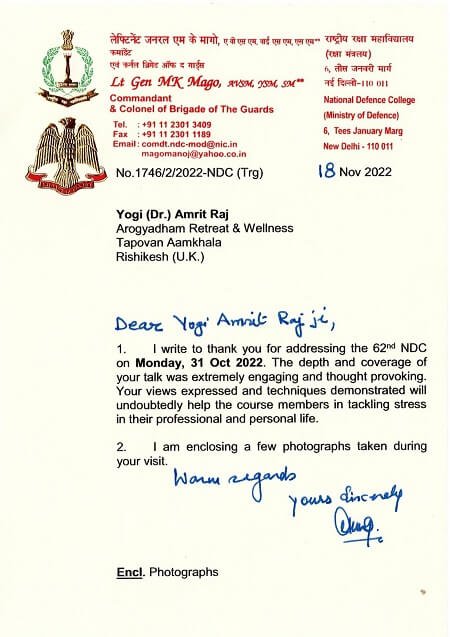 लेफ्टिनेंट जनरल एम के मागो, ए वी एस एम, वाई एस एम, एस एम**
कमांडेंट
एवं कर्नल ब्रिगेड ऑफ द गार्ड्स
Lt Gen MK Mago, AVSM, YSM, SM**
Commandant
& Colonel of Brigade of The Guards
Tel. : +91 11 2301 3409
Fax : +91 11 2301 1189
Email : comdt.ndc-mod@nic.in
magomanoj@yahoo.co.in
राष्ट्रीय रक्षा महाविद्यालय
(रक्षा मंत्रालय)
6, तीस जनवरी मार्ग
नई दिल्ली-110 011
National Defence College
(Ministry of Defence)
6, Tees January Marg
New Delhi - 110 011
No.1746/2/2022-NDC (Trg)
18 Nov 2022
Yogi (Dr.) Amrit Raj
Arogyadham Retreat & Wellness
Tapovan Aamkhala
Rishikesh (U.K.)
Dear Yogi Amrit Raj ji,
1. I write to thank you for addressing the 62nd NDC
on Monday, 31 Oct 2022. The depth and coverage of
your talk was extremely engaging and thought provoking.
Your views expressed and techniques demonstrated will
undoubtedly help the course members in tackling stress
in their professional and personal life.
2. I am enclosing a few photographs taken during
your visit.
Warm regards
Yours sincerely
Encl. Photographs